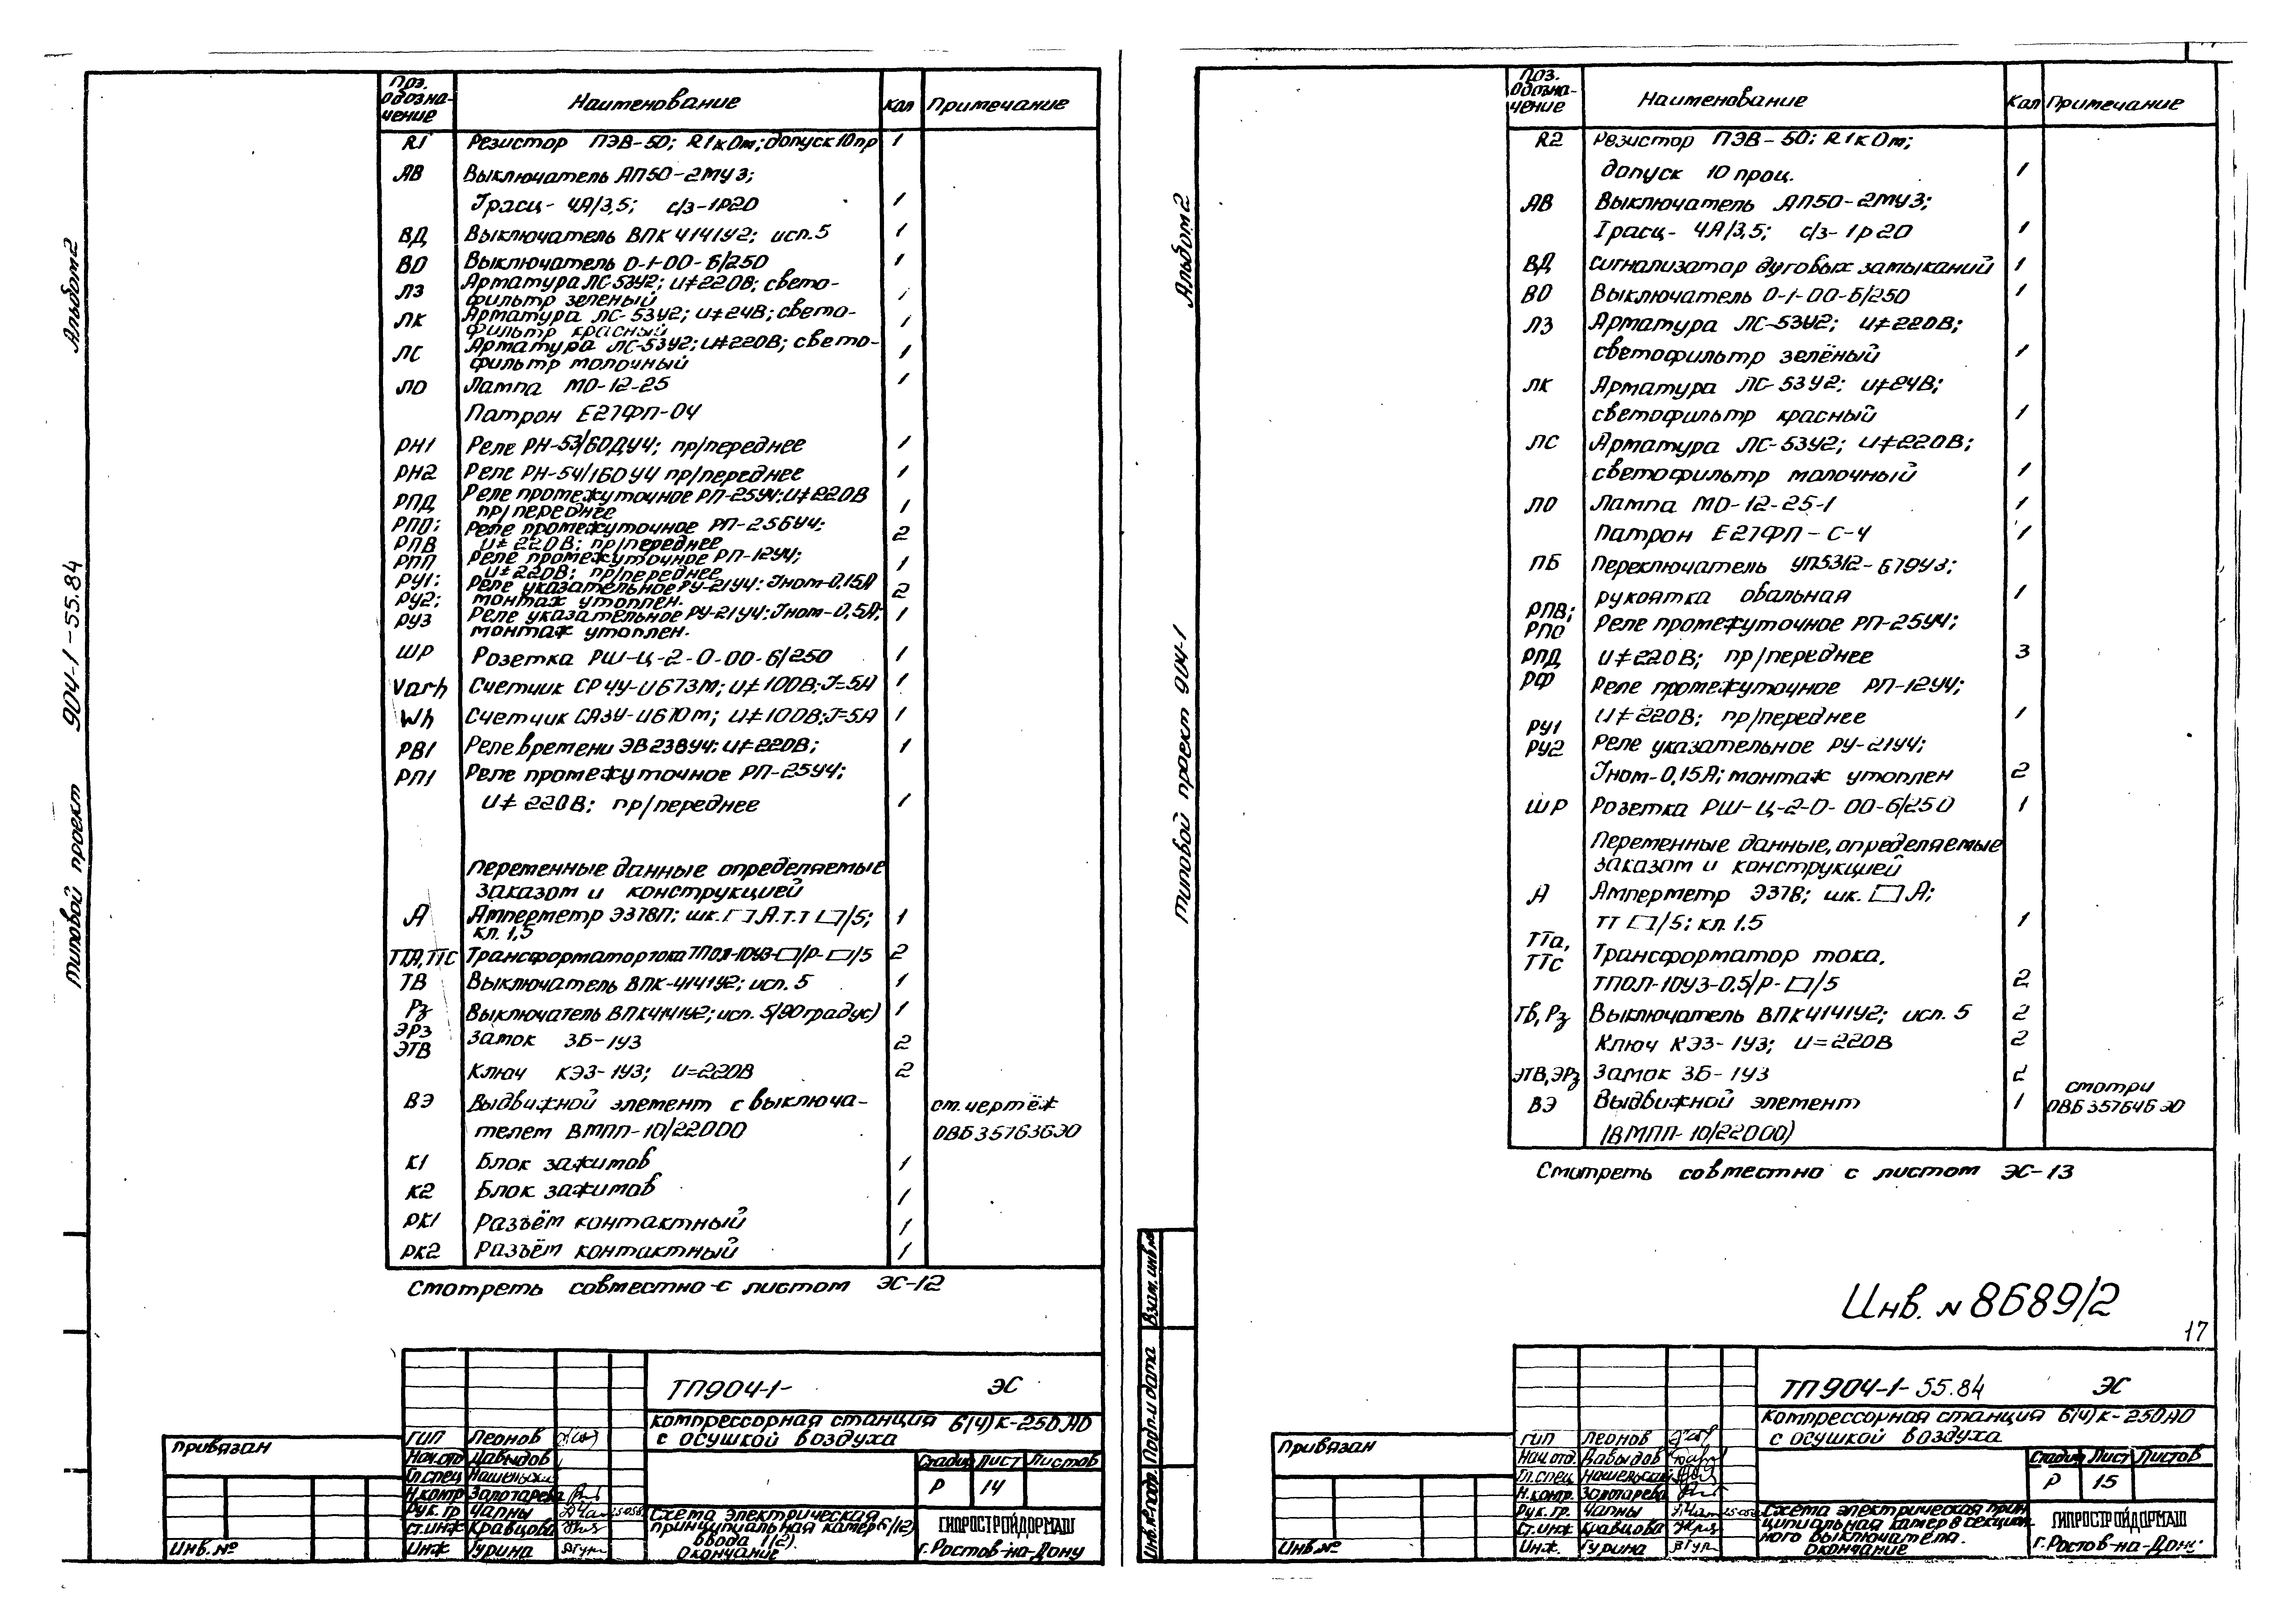 Альбом 2
Типовой проект 904-1-55.84
Поз. обозна- чение Наименование Кол Примечание
R1 Резистор ПЭВ-50; R1кОм; допуск 10пр 1
АВ Выключатель АП50-2МУ3;
Iрасц- 4А/3,5; с/з-1Р20 1
ВД Выключатель ВПК 4141У2; исп.5 1
ВО Выключатель 0-1-00-6/250 1
ЛЗ Арматура ЛС-53У2; U≠220В; свето-
фильтр зеленый 1
ЛК Арматура ЛС-53У2; U≠24В; свето-
фильтр красный 1
ЛС Арматура ЛС-53У2; U≠220В; свето-
фильтр молочный 1
ЛО Лампа МО-12-25 1
Патрон Е27ФП-04
РН1 Реле РН-53/60ДУ4; пр/переднее 1
РН2 Реле РН-54/160У4 пр/переднее 1
РПД Реле промежуточное РП-25У4; U≠220В
пр/переднее 1
РПО; Реле промежуточное РП-256У4;
РПВ U≠220В; пр/переднее 2
РПП Реле промежуточное РП-12У4;
U≠220В; пр/переднее 1
РУ1; Реле указательное РУ-21У4: Iном-0,15А
РУ2; монтаж утоплен. 2
РУ3 Реле указательное РУ-21У4: Iном-0,5А; 1
монтаж утоплен.
ШР Розетка РШ-Ц-2-0-00-6/250 1
Varh Счетчик СР4У-И673М; U≠100В; I=5А 1
Wh Счетчик СА3У-И670М; U≠100В; I=5А 1
РВ1 Реле времени ЭВ238У4: U≠220В; 1
РП1 Реле промежуточное РП-25У4;
U≠220В; пр/переднее 1
Переменные данные определяемые
заказом и конструкцией
А Амперметр Э378П; шк. □ А. т.т □/5; 1
кл. 1,5
ТТА, ТТС Трансформатор тока ТПОЛ-10У3-□/Р-□/5 2
ТВ Выключатель ВПК-4141У2; исп. 5 1
Рз Выключатель ВПК4141У2; исп. 5/90градус) 1
ЭРз
ЭТВ Замок ЗБ-1У3 2
Ключ КЭЗ-1У3; U=220В 2
ВЭ Выдвижной элемент с выключа- см. чертёж
телем ВМПП-10/22000 0ВБ357636Э0
К1 Блок зажимов 1
К2 Блок зажимов 1
РК1 Разъём контактный 1
РК2 Разъём контактный 1
Смотреть совместно с листом ЭС-12
ТП904-1- ЭС
Компрессорная станция 6(4)К-250А0
с осушкой воздуха
Привязан
Инв.№
ГИП Леонов
Нач.отд Давыдов
Гл.спец Нашельский
Н.контр Золотарева
Рук. гр Чапны
Ст.инж Кравцова
Инж Гурина
Стадия Лист Листов
Р 14
Схема электрическая
принципиальная камер 6/12)
ввода 1(2).
Окончание
ГИПРОСТРОЙДОРМАШ
г.Ростов-на-Дону
Альбом 2
Типовой проект 904-1
Поз. обозна- чение Наименование Кол Примечание
R2 Резистор ПЭВ-50; R1кОм;
допуск 10 проц. 1
АВ Выключатель АП50-2МУ3;
Iрасц- 4А/3,5; с/з-1Р20 1
ВД Сигнализатор дуговых замыканий 1
ВО Выключатель 0-1-00-6/250 1
ЛЗ Арматура ЛС-53У2; U≠220В;
светофильтр зелёный 1
ЛК Арматура ЛС-53У2; U≠24В;
светофильтр красный 1
ЛС Арматура ЛС-53У2; U≠220В;
светофильтр молочный 1
ЛО Лампа МО-12-25-1 1
Патрон Е27ФП-С-4 1
ПБ Переключатель УП5312-Б79У3;
рукоятка овальная 1
РПВ;
РПО Реле промежуточное РП-25У4;
РПД U≠220В; пр/переднее 3
РФ Реле промежуточное РП-12У4;
U≠220В; пр/переднее 1
РУ1
РУ2 Реле указательное РУ-21У4;
Iном-0,15А; монтаж утоплен 2
ШР Розетка РШ-Ц-2-0-00-6/250 1
Переменные данные, определяемые
заказом и конструкцией
А Амперметр Э378; шк. □ А;
ТТ □/5; кл. 1.5 1
ТТа,
ТТс Трансформатор тока.
ТПОЛ-10У3-0.5/Р-□/5 2
ТВ, Рз Выключатель ВПК4141У2; исп. 5 2
Ключ КЭЗ-1У3; U=220В 2
ЭТВ, ЭРз Замок ЗБ-1У3 2
ВЭ Выдвижной элемент 1 смотри
(ВМПП-10/22000) 0ВБ357646Э0
Смотреть совместно с листом ЭС-13
Инв. №8689/2
17
Взам. инв.№
Подп. и дата
Инв.№ подл.
ТП904-1-55.84 ЭС
Компрессорная станция 6(4)К-250А0
с осушкой воздуха
Привязан
Инв.№
ГИП Леонов
Нач.отд. Давыдов
Гл.спец Нашельский
Н.контр. Золотарева
Рук. гр. Чапны
Ст.инж Кравцова
Инж. Гурина
Стадия Лист Листов
Р 15
Схема электрическая прин
ципиальная камер в секцион
ного выключателя.
Окончание
ГИПРОСТРОЙДОРМАШ
г.Ростов-на-Дону